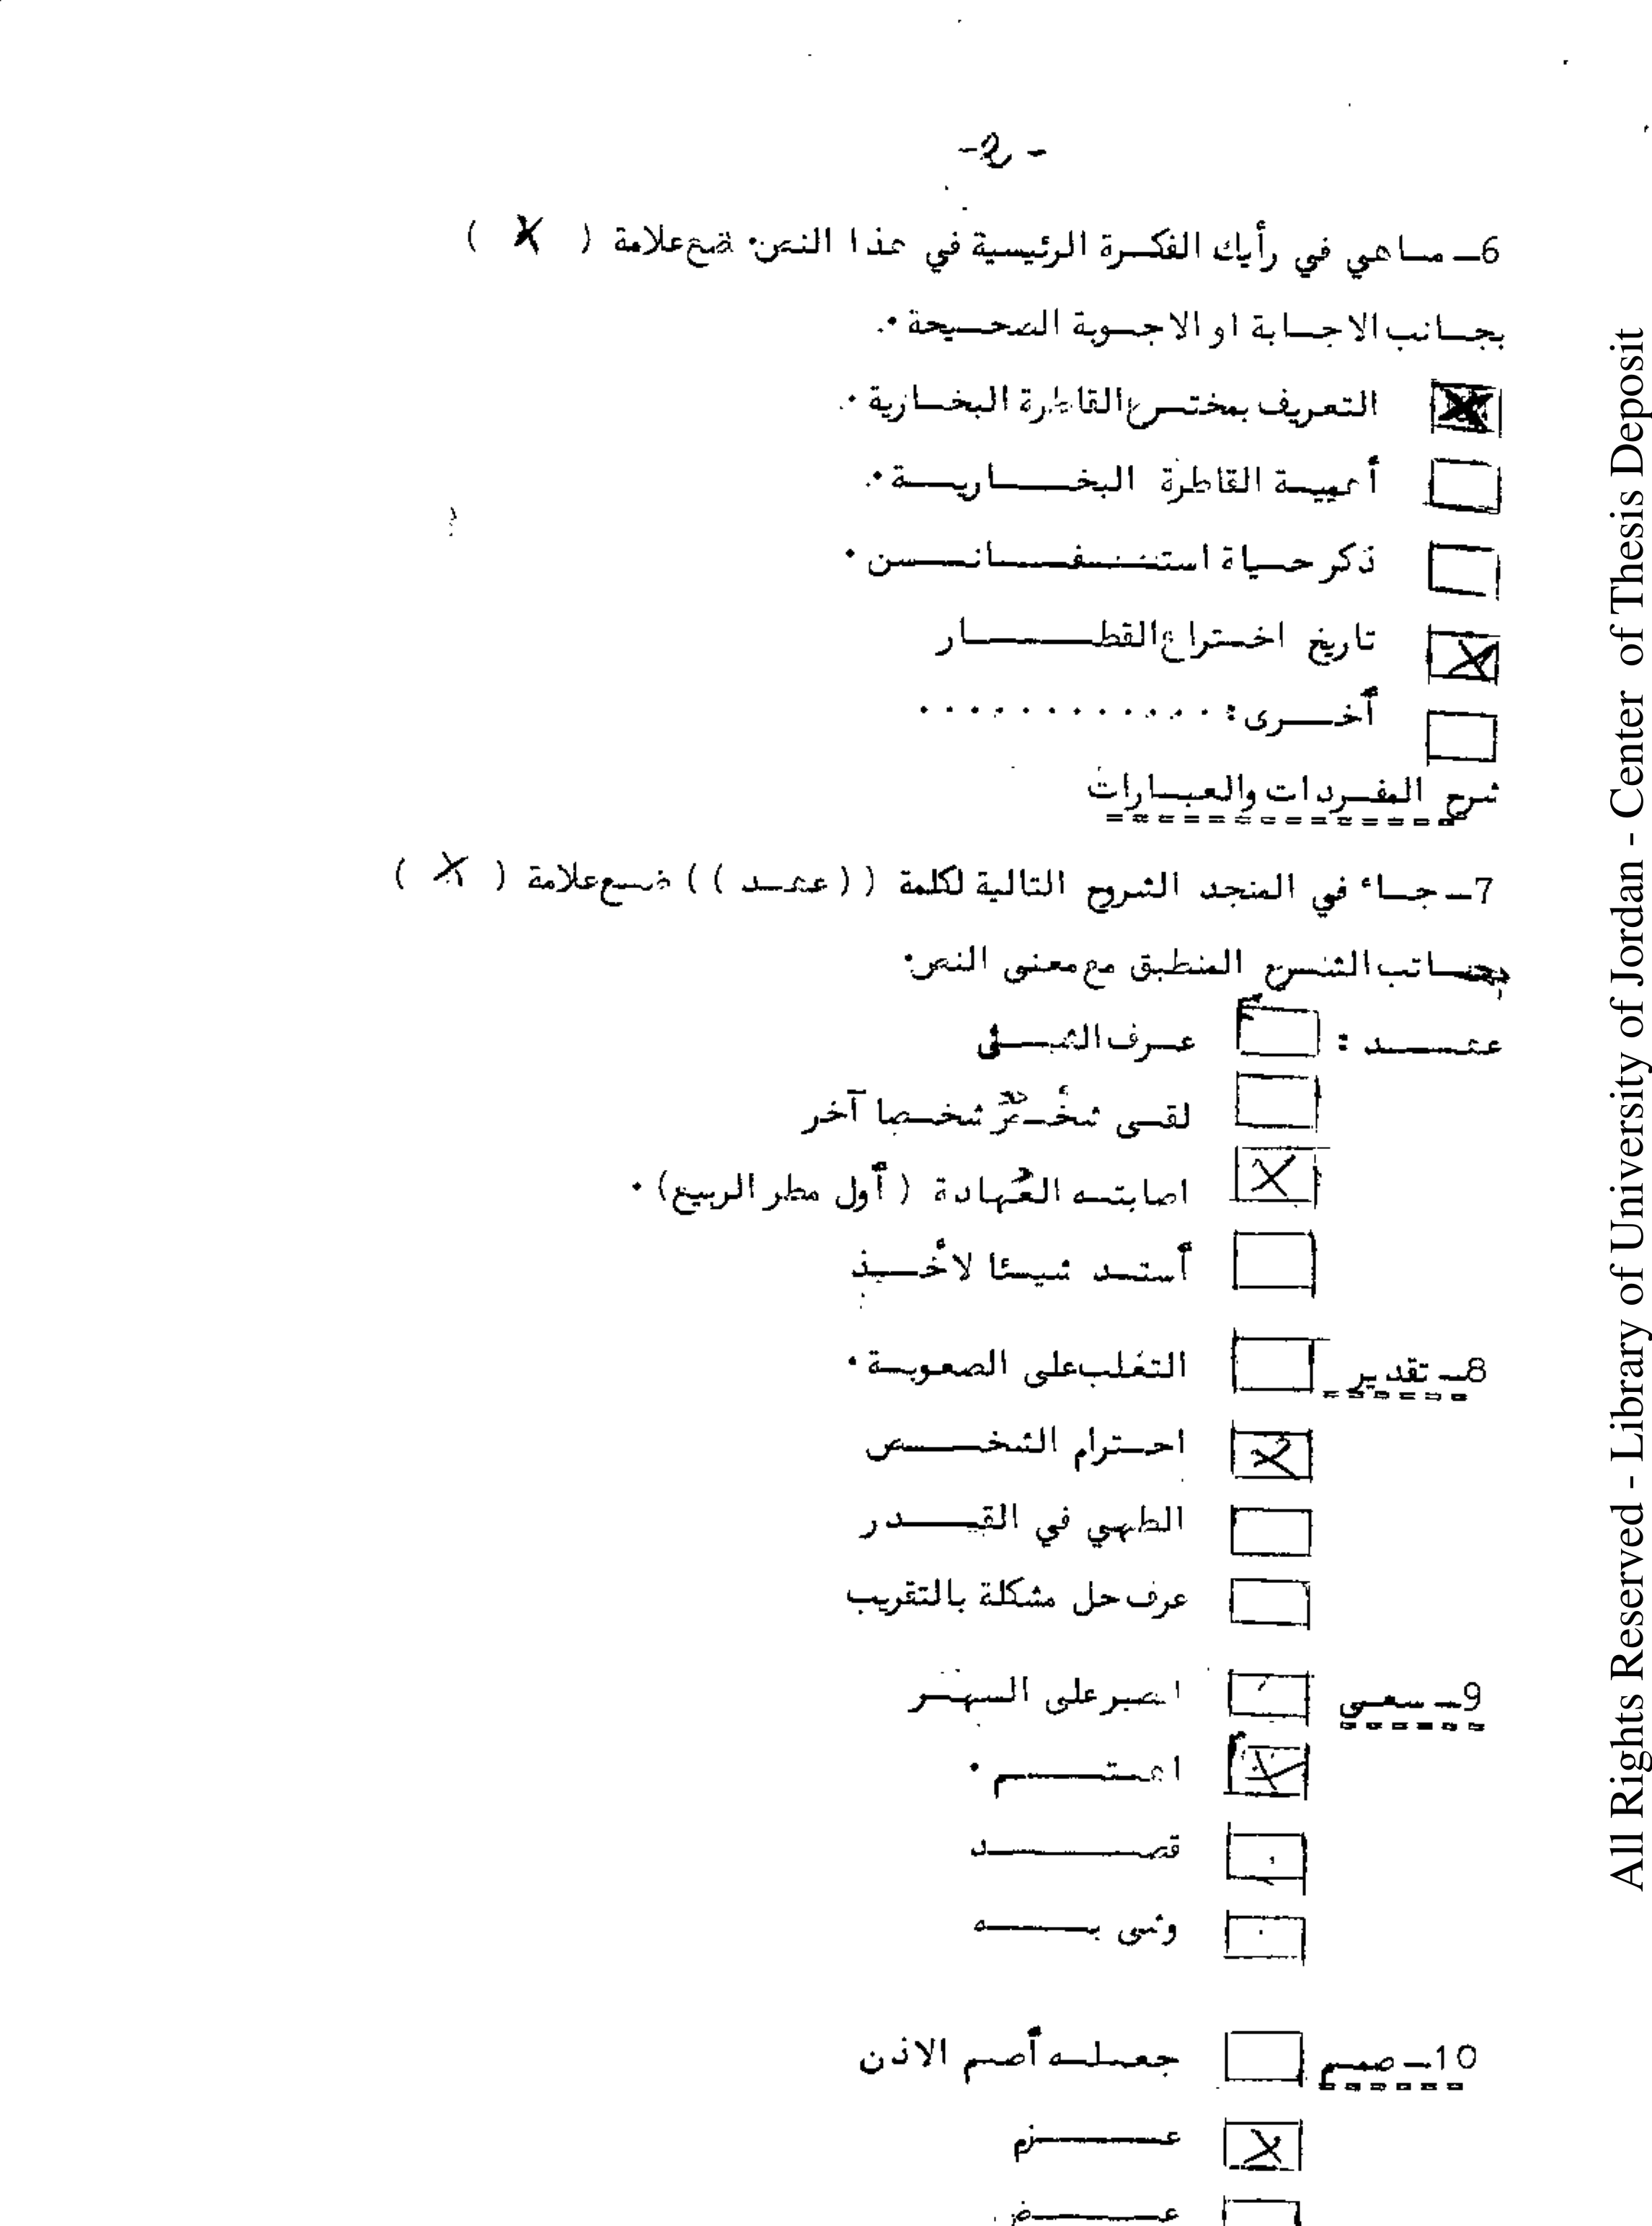 -2-
6ـ ماهي في رأيك الفكرة الرئيسية في هذا النص. ضع علامة ( X )
بجانب الاجابة او الاجوبة الصحيحة .
التعريف بمخترع القاطرة البخارية .
أهمية القاطرة البخارية .
ذكر حياة استنفانسن .
تاريخ اختراع القطار
أخرى : . . . . . . . . . . . .
شرح المفردات والعبارات
7ـ جاء في المنجد الشروح التالية لكلمة (( عهد )) ضع علامة ( X )
بجانب الشرح المنطبق مع معنى النص.
عهد : عرف الشئ
لقى شخص شخصا آخر
اصابته العهادة ( أول مطر الربيع) .
أسند شيئا لأخذ
8ـ تقدير التغلب على الصعوبة .
احترام الشخص
الطهي في القدر
عرف حل مشكلة بالتقريب
9ـ سعى اصبر على السهر
اهتم .
قصد
وشى به
10ـ صمم جعله أصم الاذن
عزم
عض
All Rights Reserved - Library of University of Jordan - Center of Thesis Deposit